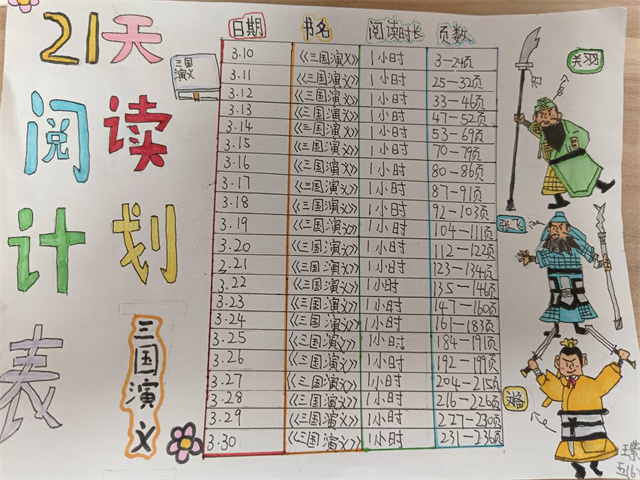 21天
阅读
计划
表
三国演义
三国
演义
日期 书名 阅读时长 页数
3.10 《三国演义》 1小时 3—24页
3.11 《三国演义》 1小时 25—32页
3.12 《三国演义》 1小时 33—46页
3.13 《三国演义》 1小时 47—52页
3.14 《三国演义》 1小时 53—69页
3.15 《三国演义》 1小时 70—79页
3.16 《三国演义》 1小时 80—86页
3.17 《三国演义》 1小时 87—91页
3.18 《三国演义》 1小时 92—103页
3.19 《三国演义》 1小时 104—111页
3.20 《三国演义》 1小时 112—122页
2.21 《三国演义》 1小时 123—134页
3.22 《三国演义》 1小时 135—146页
3.23 《三国演义》 1小时 147—160页
3.24 《三国演义》 1小时 161—183页
3.25 《三国演义》 1小时 184—191页
3.26 《三国演义》 1小时 192—199页
3.27 《三国演义》 1小时 204—215页
3.28 《三国演义》 1小时 216—226页
3.29 《三国演义》 1小时 227—230页
3.30 《三国演义》 1小时 231—236页
关羽
张飞
刘备
王紫
五(6)